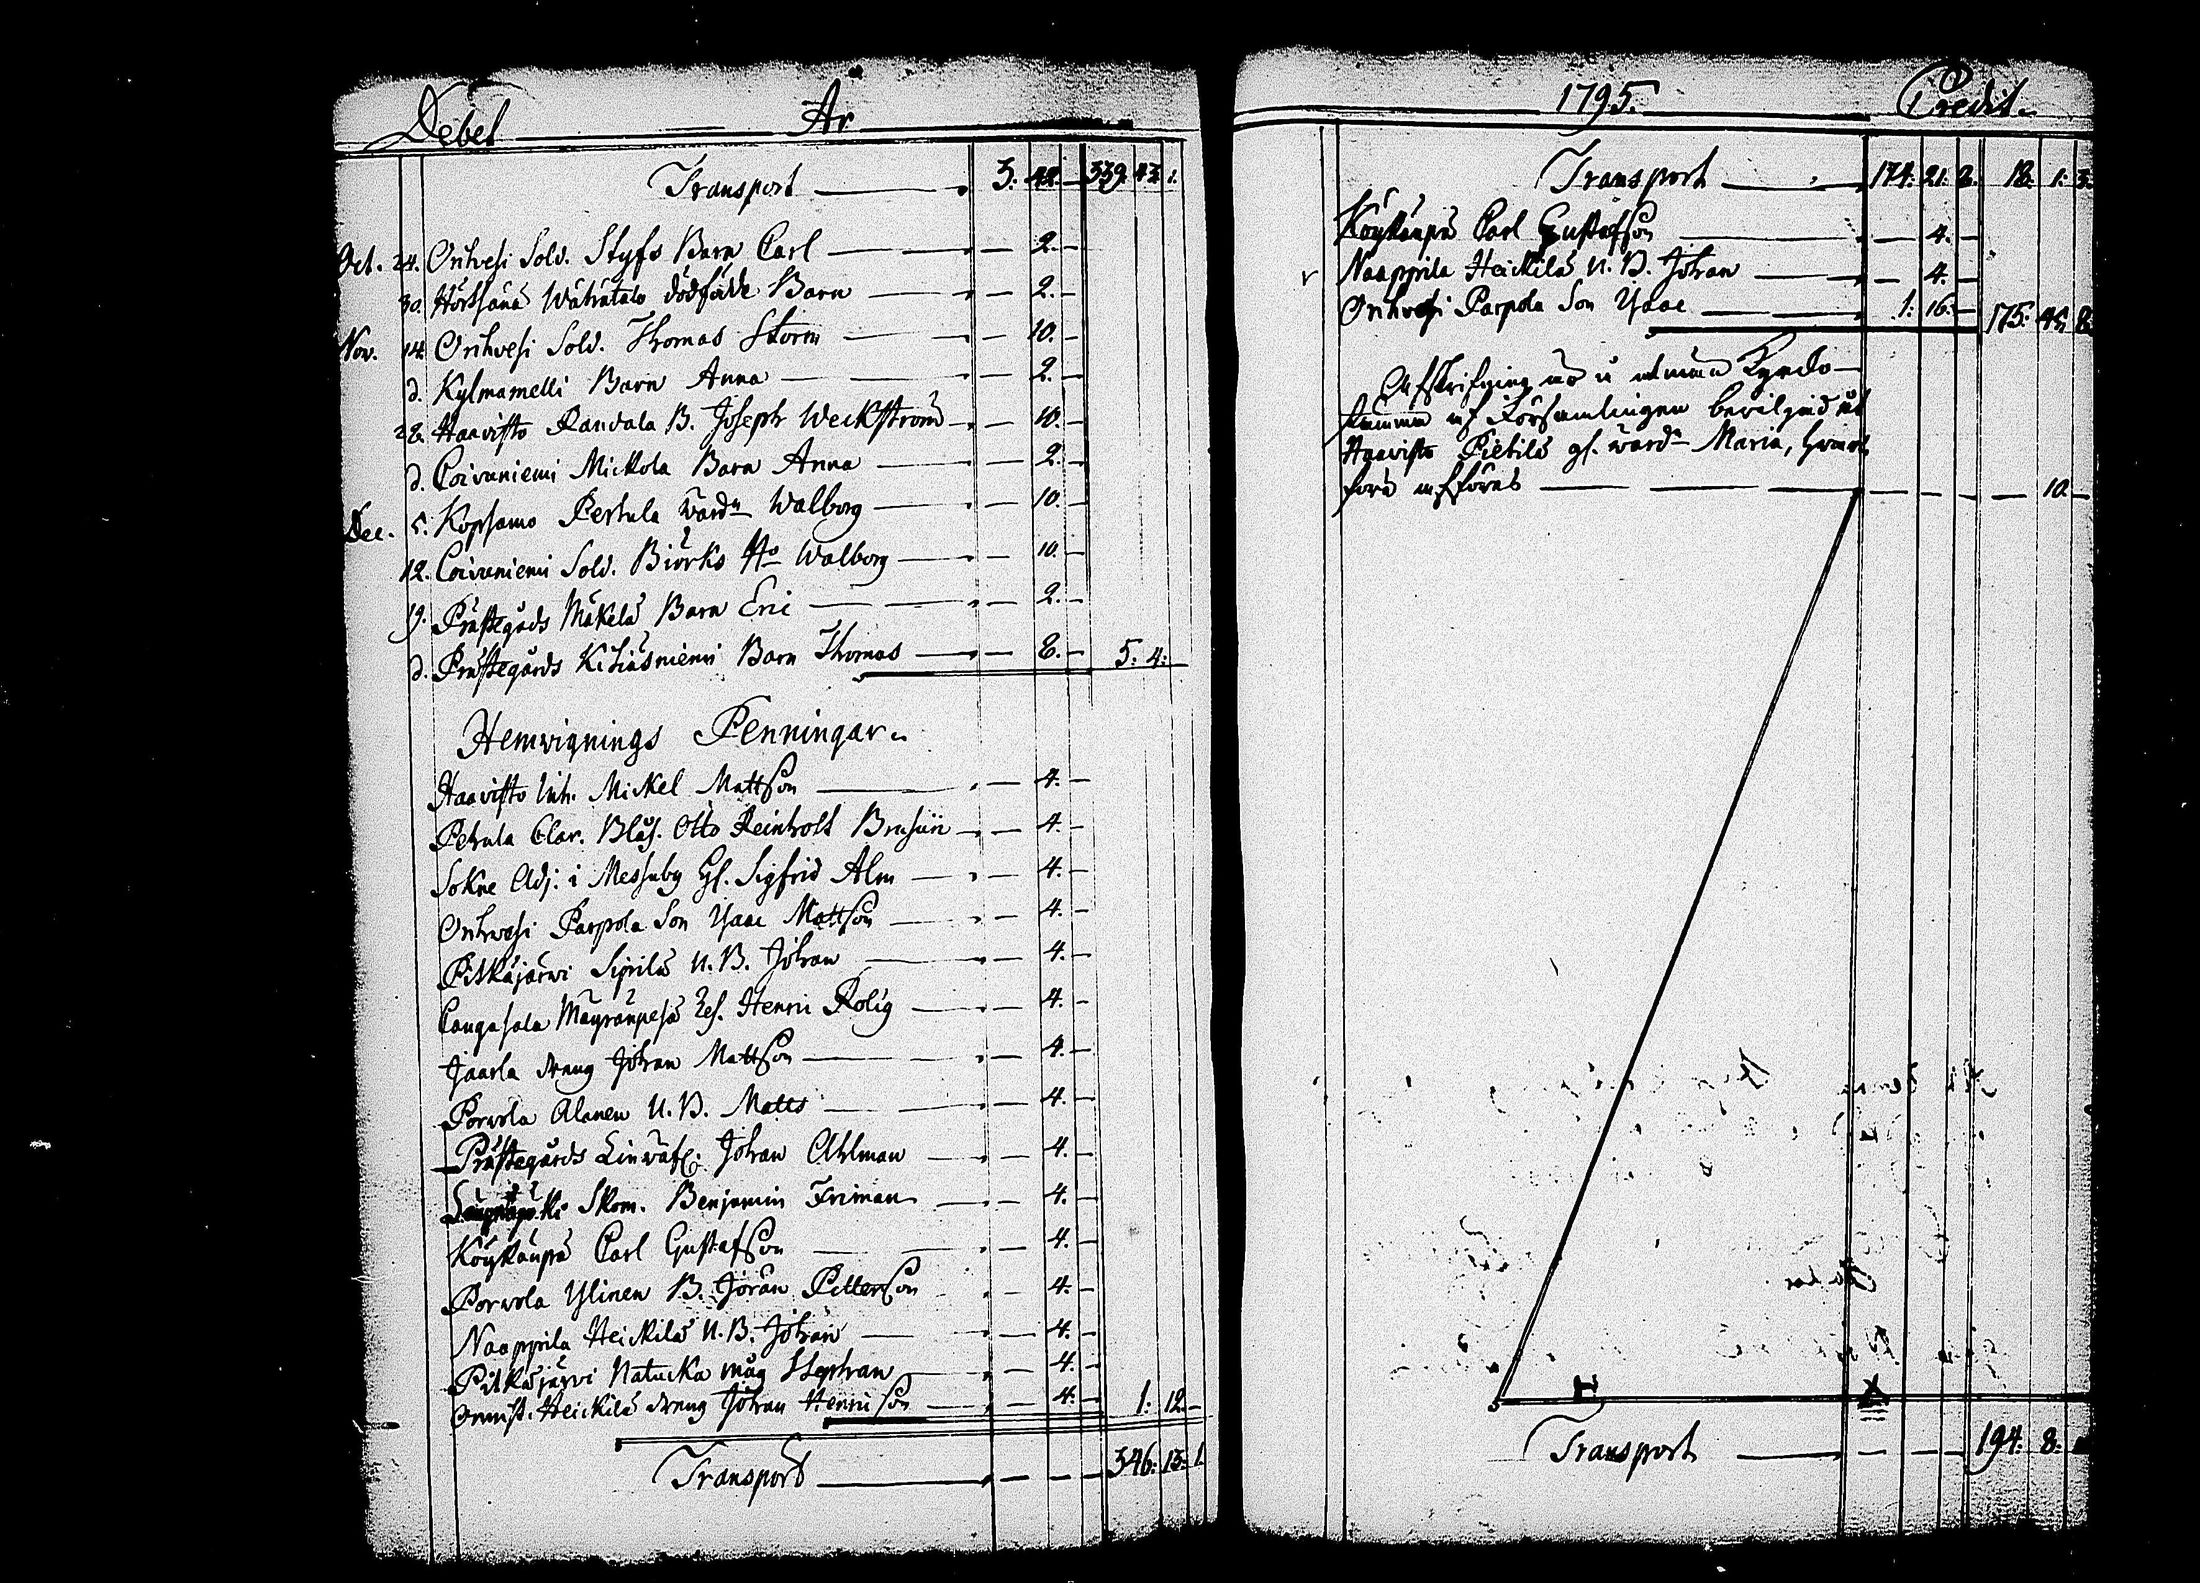 Debet År
Transport 3. 42. 339. 43. 1.
Oct. 24. Orihvesi Sold. Styfs Barn Carl 2.
30. Hörtsänä dödfödde Barn 2.
Nov. 14. Orihvesi Sold. Thomas Storm 10.
d. Kylmamelli Barn Anna 2.
28. Haavisto Randala B. Joseph Weckström 10.
d. Coivuniemi Mickola Barn Anna 2.
Dec. 5. Kopsamo Pertula Walborg 10.
12. Coivuniemi Sold. Biörks Ho Walborg 10.
19. Prästegårds Mäkelä Barn Eric 2.
d. Prästegårds Kihiäsniemi Barn Thomas 8. 5. 4.
Hemvignings Penningar.
Haavisto Inh. Mickel Mattson 4.
Pehula Clar. Blås. Otto Reinholt 4.
Sokne Adj. i Messuby Hl. Sigfrid Alm 4.
Orihvesi Parpola Son Ysaac Mattson 4.
Pitkäjärwi Siprilä U.B. Johan 4.
Cangasala Mäyränpesä Henric Rolig 4.
Jaarla dreng Johan Mattson 4.
Porvola Alanen U.B. Matts 4.
Prästegårds Linwäf. Johan Ahlman 4.
Skom. Benjamin Friman 4.
Köykänpä Carl Gustafson 4.
Porvola Ylinen B. Jöran Petterson 4.
Naappila Heickilä U.B. Johan 4.
Pitkäjärvi Natucka måg Stephan 4.
Onnist. Heickilä dreng Johan Henricson 4. 1. 12.
Transport 346. 13. 1.
1795. Credit.
Transport 174. 21. 8. 18. 1. 3.
Köykänpä Carl Gustafson 4.
Naappila Heickilä U.B. Johan 4.
Orihvesi Parpola Son Ysaac 1. 16. 175. 45. 8.
Afskrifning
af Församlingen beviljad åt
Haavisto Pietilä gl. värdn Maria, hvar
före afföres 10.
Transport 194. 8.